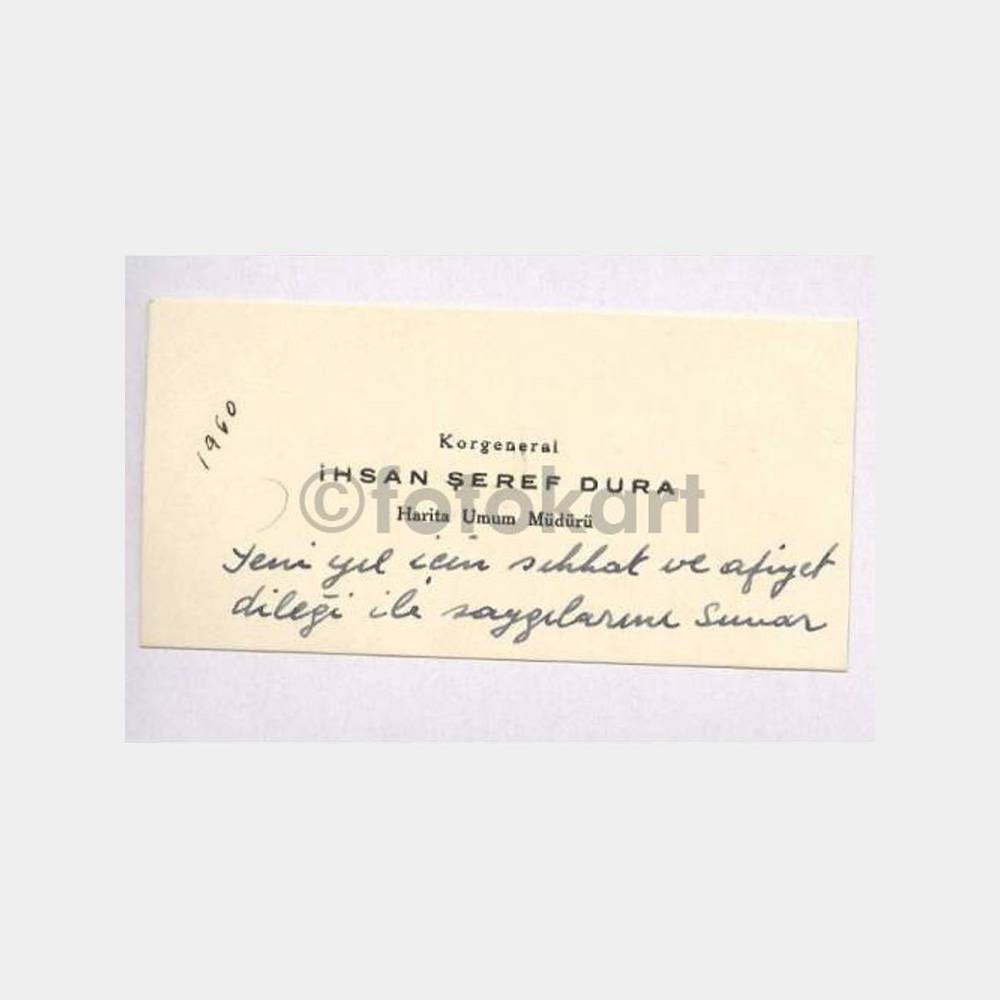 1960
Korgeneral
İHSAN ŞEREF DURA
Harita Umum Müdürü
Yeni yıl için sıhhat ve afiyet
dileği ile saygılarını sunar
©fotokart